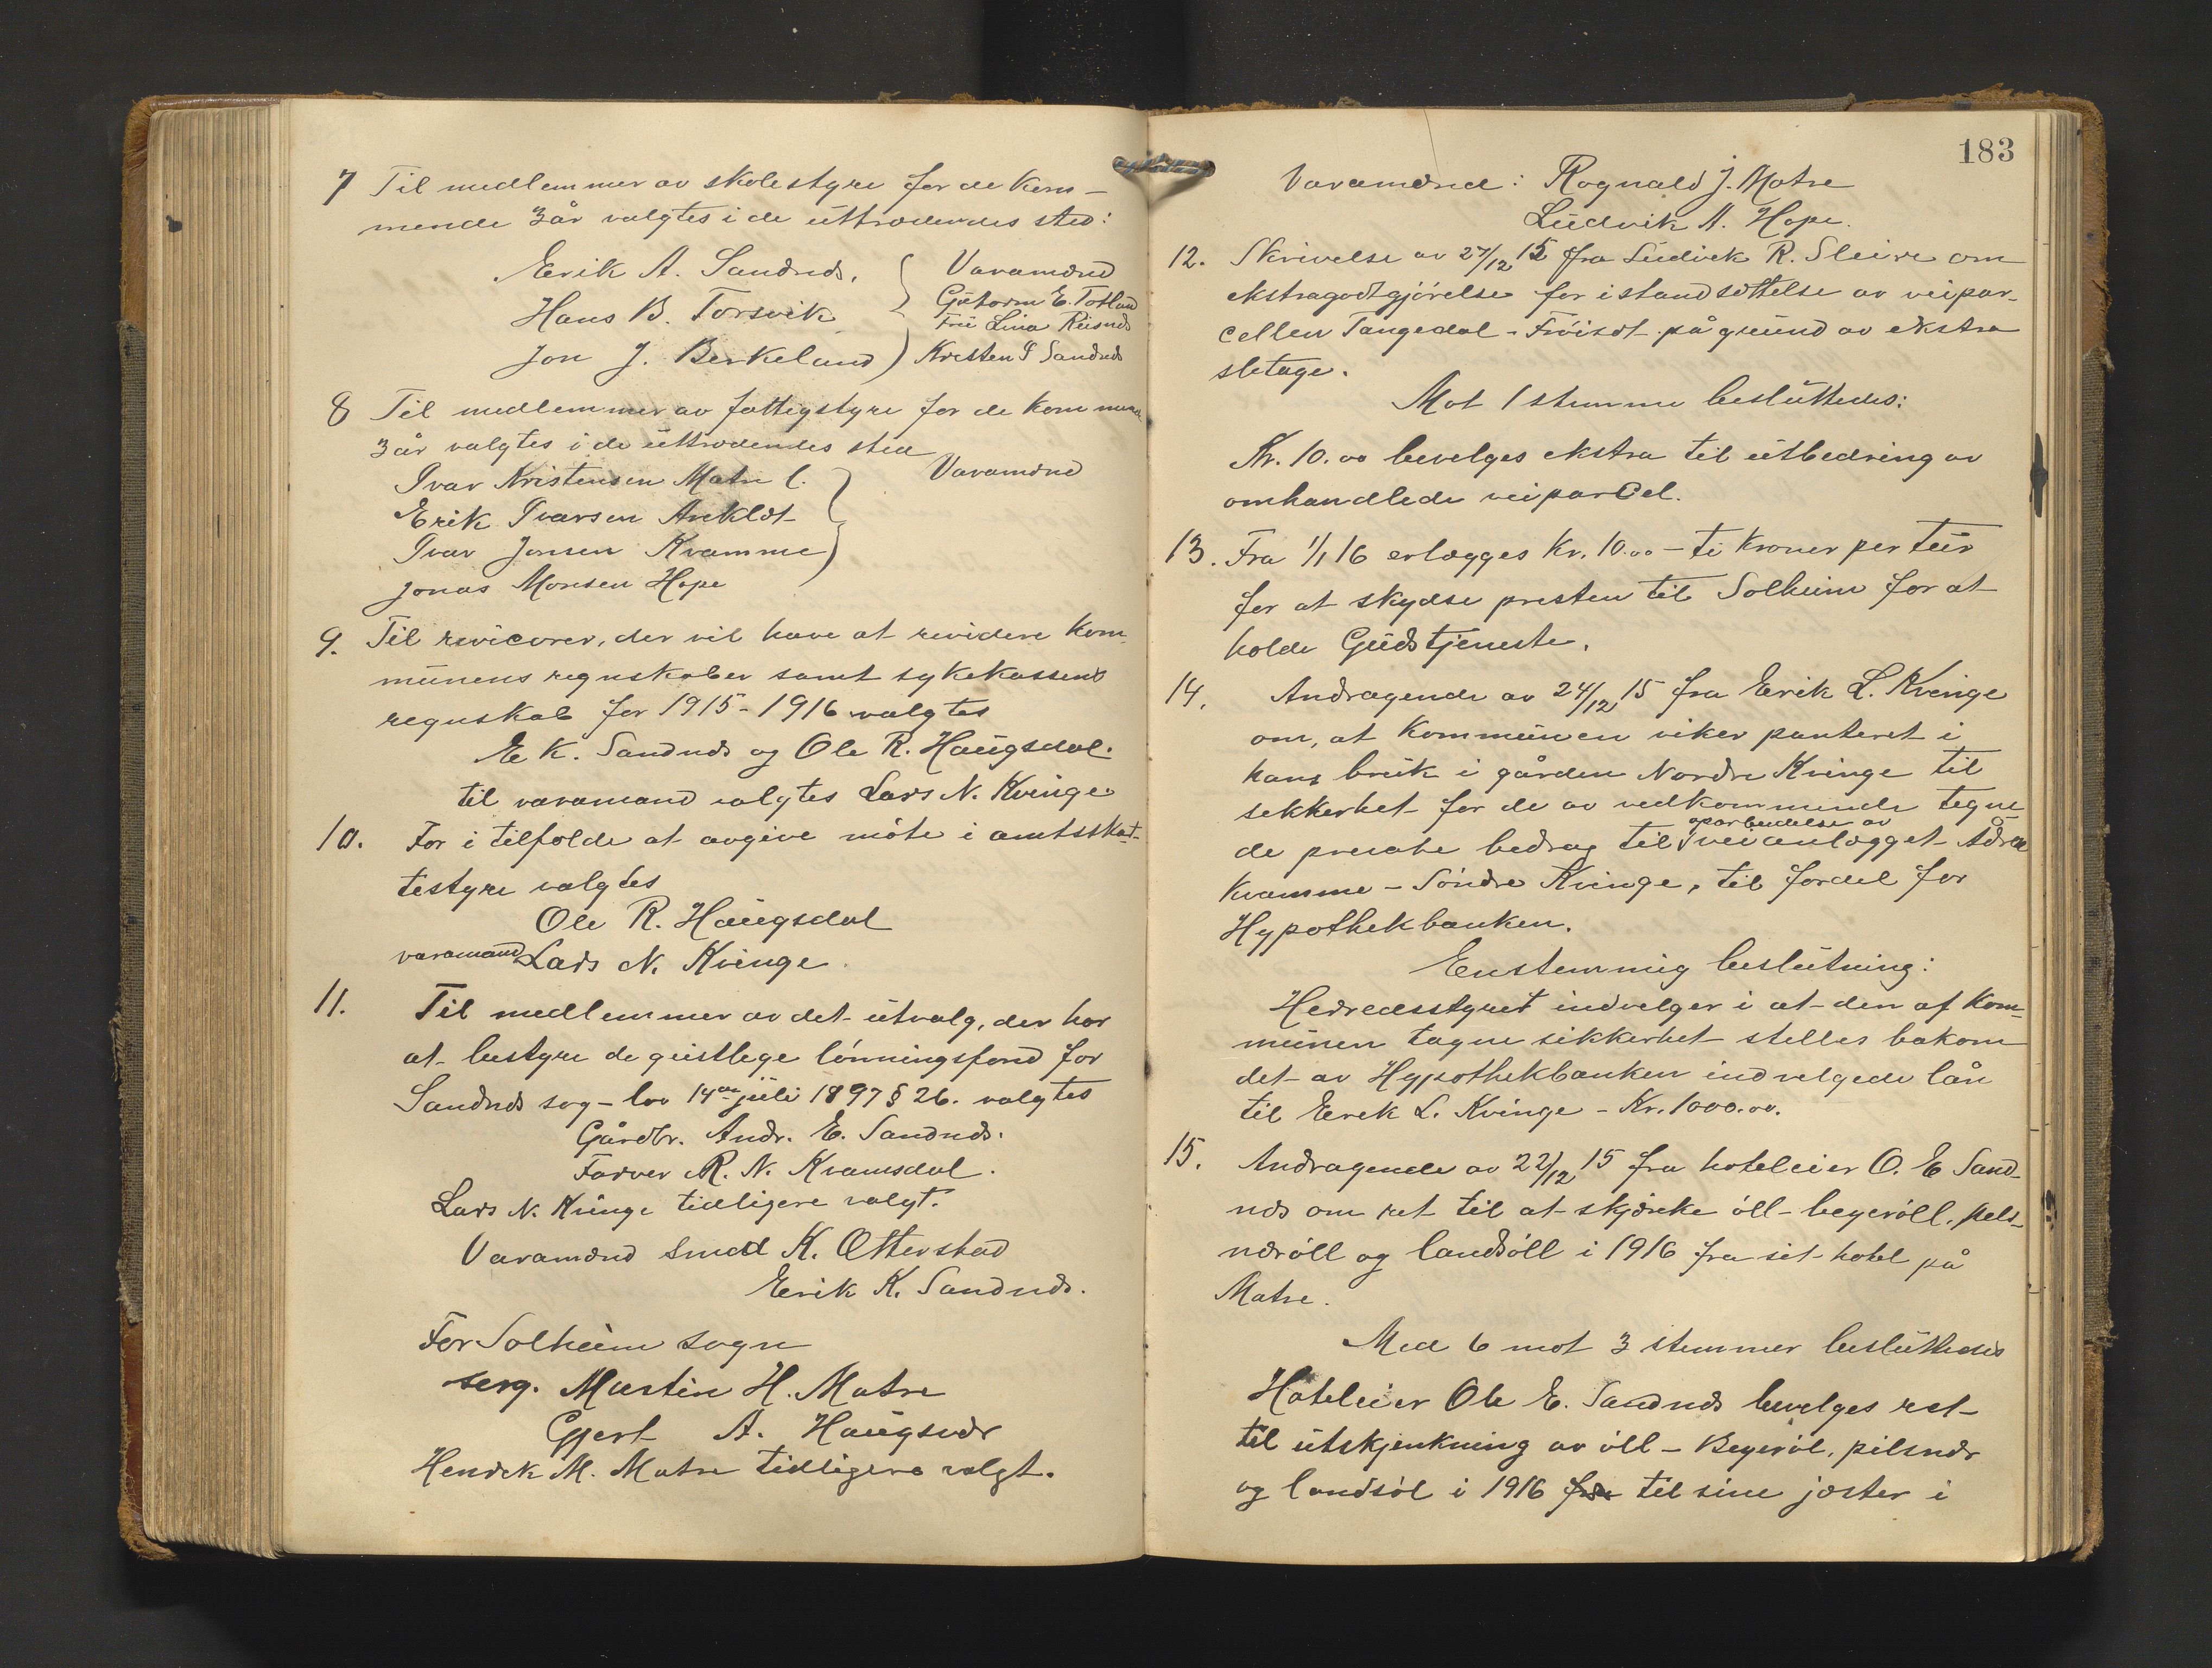 7 Til medlemmer av skolestyre for de kom-
mende 3 år valgtes i de uttrædendes sted:
Erik A. Sandnæs. Varamænd
Hans B. Torsvik Gutorm E. Totland
Fru Lina Risnæs
Jon J. Berkeland Kristen I Sandnæs
8 Til medlemmer av fattigstyre for de kommende
3 år valgtes i de uttrædendes sted
Ivar Kristensen Matre Varamænd
Erik Ivarsen Areklæt
Ivar Jonsen Kvamme
Jonas Monsen Hope
9. Til revisorer, der vil have at revidere kom-
munens regnskaber samt sykekassens
regnskab for 1915-1916 valgtes
E K. Sandnæs og Ole R. Haugsdal.
til varamand valgtes Lars N. Kvinge.
10. For i tilfælde at avgive møte i amtsskat-
testyre valgtes
Ole R. Haugsdal
varamand Lars N. Kvinge.
11. Til medlemmer av det utvalg, der har
at bestyre de geistlege lønningsfond for
Sandnæs sog - lov 14de juli 1897 § 26. valgtes
Gårdbr. Andr. E. Sandnæs.
Farver R. N. Kvamsdal.
Lars N. Kvinge tidligere valgt.
Varamænd Smed K. Otterstad
Erik K. Sandnæs.
For Solheim sogn
serg. Martin H. Matre
Gjert A. Haugsvær
Henrik M. Matre tidligere valgt.
183
Varamænd: Rognald J. Matre
Ludvik A. Hope.
12. Skrivelse av 27/12 15 fra Ludvik R. Sleire om
ekstragodtgjørelse for istandsættelse av veipar-
cellen Tangedal - Frøiset på grund av ekstra
sletage.
Mot 1 stemme besluttedes:
Kr. 10.00 bevelges ekstra til utbedring av
omhandlede veiparcel.
13. Fra 1/1 16 erlægges Kr. 10.00 - ti kroner per tur
for at skydse presten til Solheim for at
holde Gudstjeneste.
14. Andragende av 24/12 15 fra Erik L. Kvinge
om, at kommunen viker panteret i
hans bruk i gården Nordre Kvinge til
sekkerhet for de av vedkommende tegne-
de private bedrag til oparbeidelse av veianlægget Ådna
Kvamme - Søndre Kvinge, til fordel for
Hypothekbanken.
Enstemmig beslutning:
Herredsstyret indvelger i at den af kom-
munen tagne sikkerhet stelles bakom
det av Hypothekbanken indvelgede lån
til Erik L. Kvinge - Kr. 1000.00.
15. Andragende av 22/12 15 fra hoteleier O. E Sand-
næs om ret til at skjænke øll - beyerøll, pels-
nerøll og landsøll i 1916 fra sit hotel på
Matre.
Med 6 mot 3 stemmer besluttedes
Hoteleier Ole E. Sandnæs bevelges ret
til utskjenkning av øll - Beyerøl, pilsner
og landsøl i 1916 fra til sine jæster i